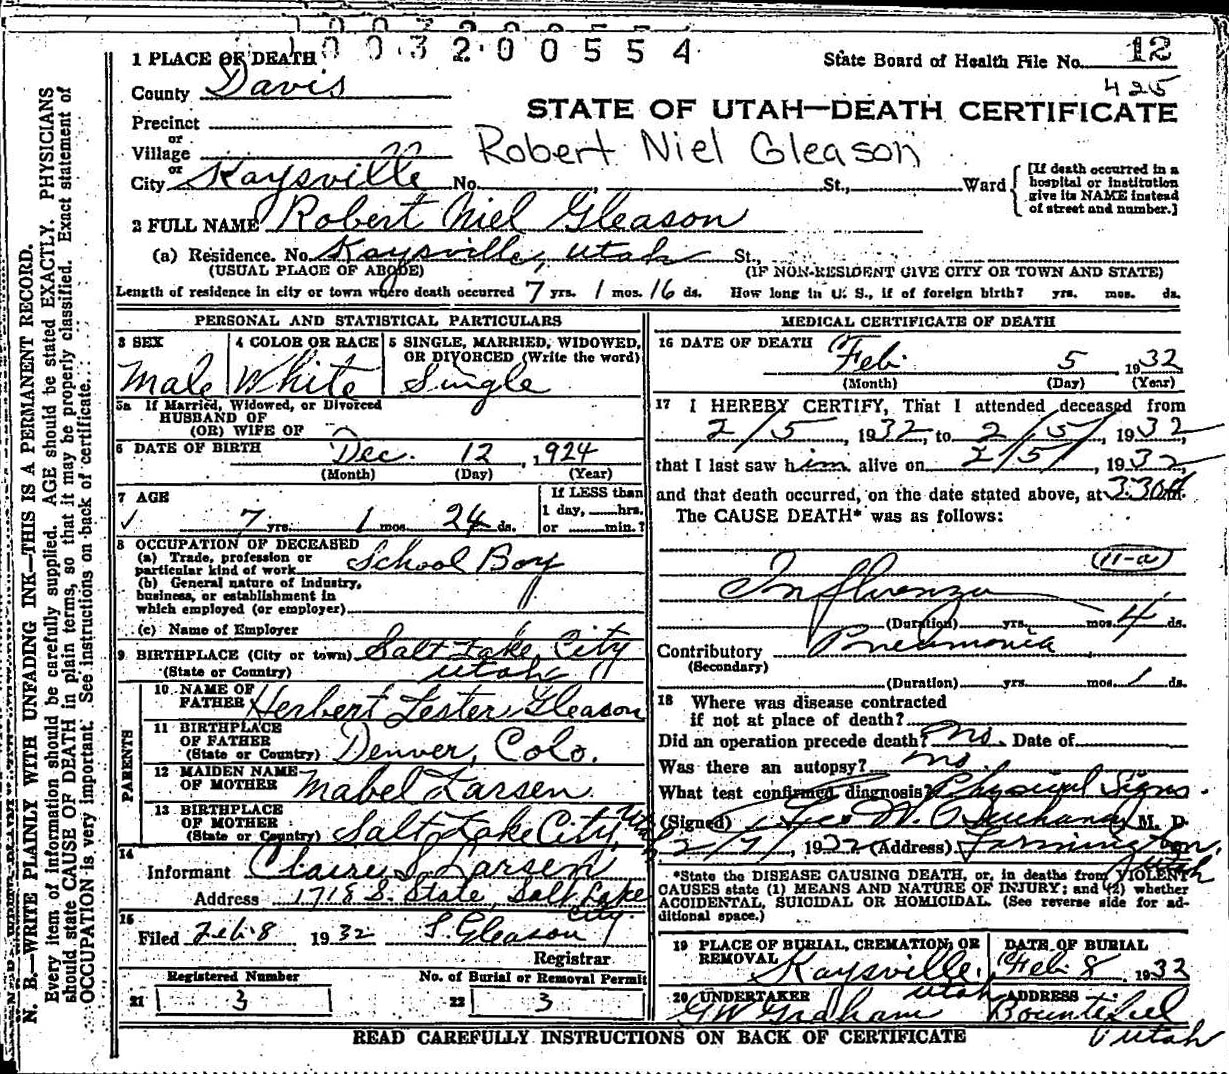 1003200554
1 PLACE OF DEATH
State Board of Health File No. 12
County Davis
425
STATE OF UTAH—DEATH CERTIFICATE
Precinct
or
Village
Robert Niel Gleason
or
City Kaysville No. , St., Ward
[If death occurred in a hospital or institution give its NAME instead of street and number.]
2 FULL NAME Robert Niel Gleason
(a) Residence. No. Kaysville, Utah St.,
(USUAL PLACE OF ABODE) (IF NON-RESIDENT GIVE CITY OR TOWN AND STATE)
Length of residence in city or town where death occurred 7 yrs. 1 mos. 16 ds. How long in U. S., if of foreign birth? yrs. mos. ds.
PERSONAL AND STATISTICAL PARTICULARS
3 SEX 4 COLOR OR RACE 5 SINGLE, MARRIED, WIDOWED,
OR DIVORCED (Write the word)
Male White Single
5a If Married, Widowed, or Divorced
HUSBAND OF
(OR) WIFE OF
6 DATE OF BIRTH Dec. 12, 1924
(Month) (Day) (Year)
7 AGE If LESS than
1 day, hrs.
✓ 7 yrs. 1 mos. 24 ds. or min.?
8 OCCUPATION OF DECEASED
(a) Trade, profession or
particular kind of work School Boy
(b) General nature of industry,
business, or establishment in
which employed (or employer)
(c) Name of Employer
9 BIRTHPLACE (City or town) Salt Lake City
(State or Country) Utah
PARENTS
10 NAME OF
FATHER Herbert Lester Gleason
11 BIRTHPLACE
OF FATHER
(State or Country) Denver, Colo.
12 MAIDEN NAME
OF MOTHER Mabel Larsen.
13 BIRTHPLACE
OF MOTHER
(State or Country) Salt Lake City,
14
Informant Claire S. Larsen
Address 1718 S. State, Salt Lake
City
15
Filed Feb 8 1932 L. Gleason
Registrar
Registered Number No. of Burial or Removal Permit
21 3 22 3
MEDICAL CERTIFICATE OF DEATH
16 DATE OF DEATH Feb. 5, 1932
(Month) (Day) (Year)
17 I HEREBY CERTIFY, That I attended deceased from
2/5, 1932, to 2/5/, 1932,
that I last saw him alive on 2/5/, 1932,
and that death occurred, on the date stated above, at 3:30
The CAUSE DEATH* was as follows:
11-a
Influenza
(Duration) yrs. mos. 4 ds.
Contributory Pneumonia
(Secondary)
(Duration) yrs. mos. 1 ds.
18 Where was disease contracted
if not at place of death?
Did an operation precede death? no. Date of
Was there an autopsy? no.
What test confirmed diagnosis? Physical Signs.
(Signed) Geo W. Buchanan M. D.
2/7/, 1932 (Address) Farmington,
Utah
*State the DISEASE CAUSING DEATH, or, in deaths from VIOLENT
CAUSES state (1) MEANS AND NATURE OF INJURY; and (2) whether
ACCIDENTAL, SUICIDAL OR HOMICIDAL. (See reverse side for ad-
ditional space.)
19 PLACE OF BURIAL, CREMATION, OR
REMOVAL Kaysville, Utah
DATE OF BURIAL
Feb. 8 1932
20 UNDERTAKER
GW Graham
ADDRESS
Bountiful
Utah
READ CAREFULLY INSTRUCTIONS ON BACK OF CERTIFICATE
N. B.—WRITE PLAINLY WITH UNFADING INK—THIS IS A PERMANENT RECORD.
Every item of information should be carefully supplied. AGE should be stated EXACTLY. PHYSICIANS
should state CAUSE OF DEATH in plain terms, so that it may be properly classified. Exact statement of
OCCUPATION is very important. See instructions on back of certificate.